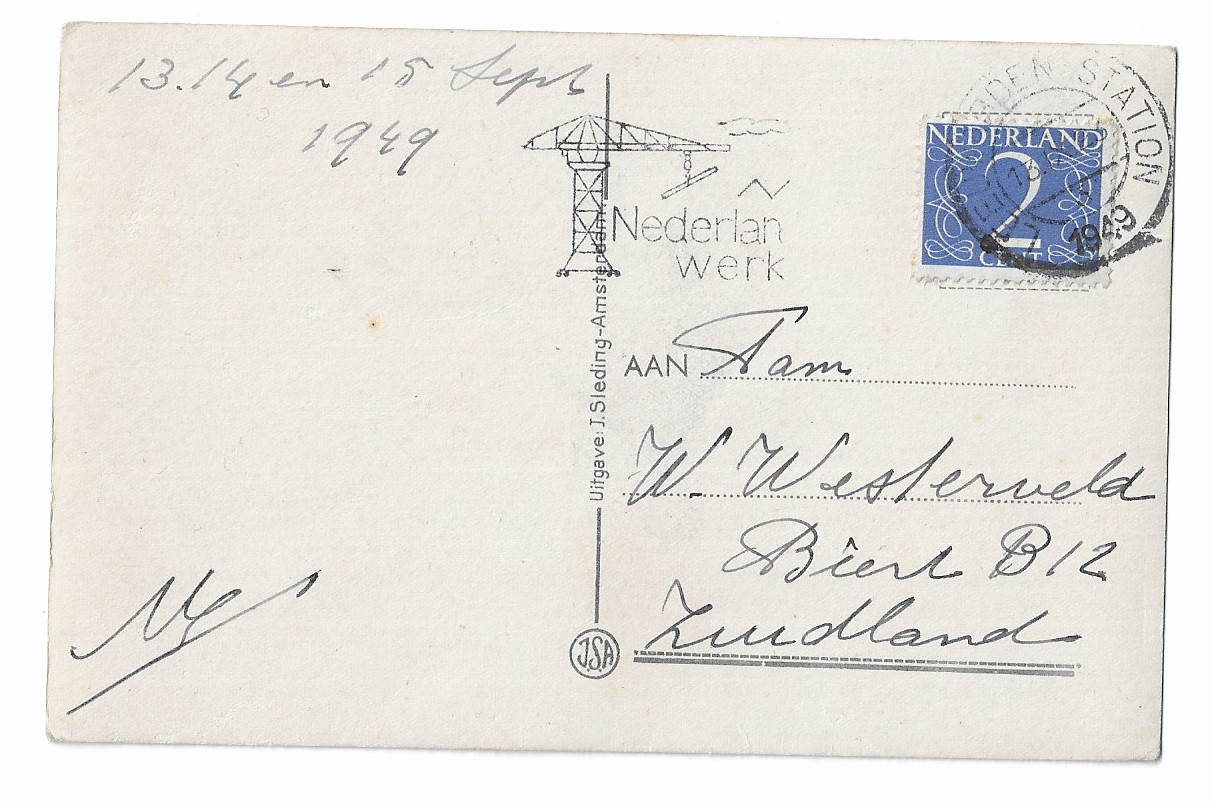 13.14 en 15 Sept
1949
Nederlan
werk
DEN STATION
1949
NEDERLAND
2
CENT
Uitgave: J. Sleding-Amsterdam.
AAN Fam
W. Westerveld
Biert B12
Zuidland
JSA